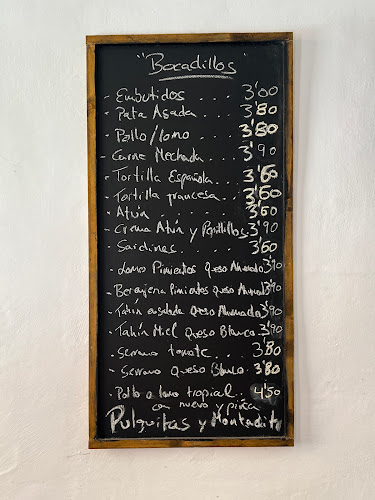 "Bocadillos"
- Embutidos . . . . 3'00
- Pata Asada . . . . 3'80
- Pollo/lomo . . . . 3'80
- Carne Mechada . . . . 3'90
- Tortilla Española . . . 3'60
- Tortilla francesa . . . 3'60
- Atún . . . . . . . . 3'60
- Crema Atún y Pepinillos. 3'90
- Sardinas . . . . . 3'60
- Lomo Pimientos Queso Ahumado 3'90
- Berenjena Pimientos Queso Ahumado 3'90
- Tahín ensalada Queso Ahumado 3'90
- Tahín Miel Queso Blanco. 3'90
- Serrano tomate . . . 3'80
- Serrano Queso Blanco. 3'80
- Pollo o lomo tropical . . 4'50
con huevo y piña
Pulguitas y Montadito